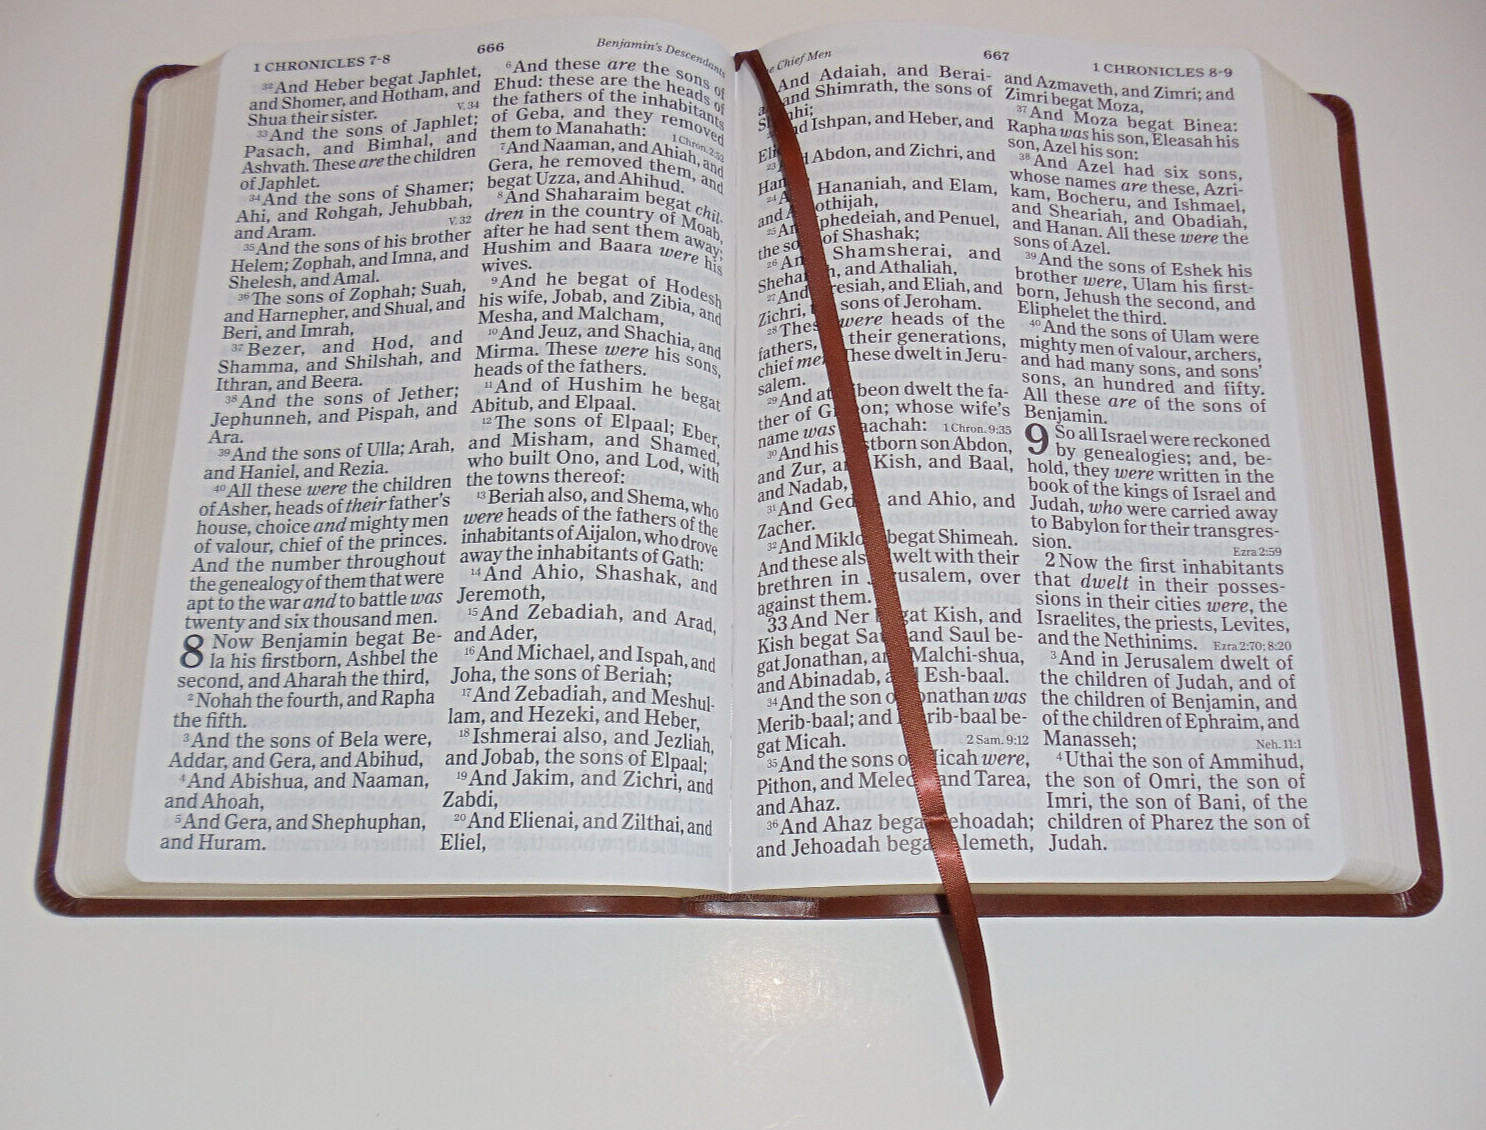 1 CHRONICLES 7-8
666
Benjamin's Descendants
32 And Heber begat Japhlet,
and Shomer, and Hotham, and
Shua their sister. V. 34
33 And the sons of Japhlet;
Pasach, and Bimhal, and
Ashvath. These are the children
of Japhlet.
34 And the sons of Shamer;
Ahi, and Rohgah, Jehubbah,
and Aram. V. 32
35 And the sons of his brother
Helem; Zophah, and Imna, and
Shelesh, and Amal.
36 The sons of Zophah; Suah,
and Harnepher, and Shual, and
Beri, and Imrah,
37 Bezer, and Hod, and
Shamma, and Shilshah, and
Ithran, and Beera.
38 And the sons of Jether;
Jephunneh, and Pispah, and
Ara.
39 And the sons of Ulla; Arah,
and Haniel, and Rezia.
40 All these were the children
of Asher, heads of their father's
house, choice and mighty men
of valour, chief of the princes.
And the number throughout
the genealogy of them that were
apt to the war and to battle was
twenty and six thousand men.
8 Now Benjamin begat Be-
la his firstborn, Ashbel the
second, and Aharah the third,
2 Nohah the fourth, and Rapha
the fifth.
3 And the sons of Bela were,
Addar, and Gera, and Abihud,
4 And Abishua, and Naaman,
and Ahoah,
5 And Gera, and Shephuphan,
and Huram.
6 And these are the sons of
Ehud: these are the heads of
the fathers of the inhabitants
of Geba, and they removed
them to Manahath: 1 Chron. 2:52
7 And Naaman, and Ahiah, and
Gera, he removed them, and
begat Uzza, and Ahihud.
8 And Shaharaim begat chil-
dren in the country of Moab,
after he had sent them away;
Hushim and Baara were his
wives.
9 And he begat of Hodesh
his wife, Jobab, and Zibia, and
Mesha, and Malcham,
10 And Jeuz, and Shachia, and
Mirma. These were his sons,
heads of the fathers.
11 And of Hushim he begat
Abitub, and Elpaal.
12 The sons of Elpaal; Eber,
and Misham, and Shamed,
who built Ono, and Lod, with
the towns thereof:
13 Beriah also, and Shema, who
were heads of the fathers of the
inhabitants of Aijalon, who drove
away the inhabitants of Gath:
14 And Ahio, Shashak, and
Jeremoth,
15 And Zebadiah, and Arad,
and Ader,
16 And Michael, and Ispah, and
Joha, the sons of Beriah;
17 And Zebadiah, and Meshul-
lam, and Hezeki, and Heber,
18 Ishmerai also, and Jezliah,
and Jobab, the sons of Elpaal;
19 And Jakim, and Zichri, and
Zabdi,
20 And Elienai, and Zilthai, and
Eliel,
Chief Men
667
1 CHRONICLES 8-9
And Adaiah, and Berai-
and Shimrath, the sons of
Ishpan, and Heber, and
Abdon, and Zichri, and
Hananiah, and Elam,
and
25 and Penuel,
the of Shashak;
26 Shamsherai, and
and Athaliah,
27 And and Eliah, and
Zichri, sons of Jeroham.
28 were heads of the
fathers, their generations,
chief These dwelt in Jeru-
salem.
29 And at dwelt the fa-
ther of whose wife's
name was 1 Chron. 9:35
30 And his son Abdon,
and Zur, Kish, and Baal,
and Nadab,
31 And and Ahio, and
Zacher.
32 And begat Shimeah.
And these with their
brethren in over
against them.
33 And Ner Kish, and
Kish begat and Saul be-
gat Jonathan, Malchi-shua,
and Abinadab, Esh-baal.
34 And the son was
Merib-baal; and be-
gat Micah. 2 Sam. 9:12
35 And the sons were,
Pithon, and and Tarea,
and Ahaz.
36 And Ahaz
and Jehoadah
and Azmaveth, and Zimri; and
Zimri begat Moza,
37 And Moza begat Binea:
Rapha was his son, Eleasah his
son, Azel his son:
38 And Azel had six sons,
whose names are these, Azri-
kam, Bocheru, and Ishmael,
and Sheariah, and Obadiah,
and Hanan. All these were the
sons of Azel.
39 And the sons of Eshek his
brother were, Ulam his first-
born, Jehush the second, and
Eliphelet the third.
40 And the sons of Ulam were
mighty men of valour, archers,
and had many sons, and sons'
sons, an hundred and fifty.
All these are of the sons of
Benjamin.
9 So all Israel were reckoned
by genealogies; and, be-
hold, they were written in the
book of the kings of Israel and
Judah, who were carried away
to Babylon for their transgres-
sion. Ezra 2:59
2 Now the first inhabitants
that dwelt in their posses-
sions in their cities were, the
Israelites, the priests, Levites,
and the Nethinims. Ezra 2:70; 8:20
3 And in Jerusalem dwelt of
the children of Judah, and of
the children of Benjamin, and
of the children of Ephraim, and
Manasseh; Neh. 11:1
4 Uthai the son of Ammihud,
the son of Omri, the son of
Imri, the son of Bani, of the
children of Pharez the son of
Judah.